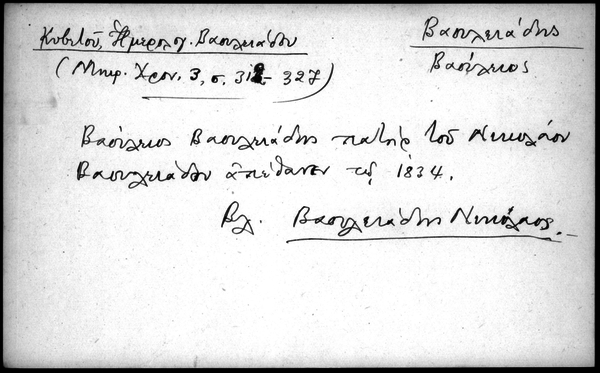 Κυβετοῦ, Ἡμερολογ. Βασιλειάδου
(Μικρ. Χρον. 3, σ. 312-327)
Βασιλειάδης
Βασίλειος
Βασίλειος Βασιλειάδης πατὴρ τοῦ Νικολάου
Βασιλειάδου ἀπέθανεν τῷ 1834.
Βλ. Βασιλειάδης Νικόλαος.